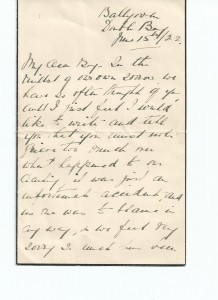 Dunt Bay
June 15th/22.
My dear Boy. In the
midst of our own sorrow we
have so often thought of you
until I just feel I would
like to write and tell
you that you must not
grieve too much over
what happened to our
it was just an
unfortunate accident, and
no one was to blame in
any way, & we feel very
sorry